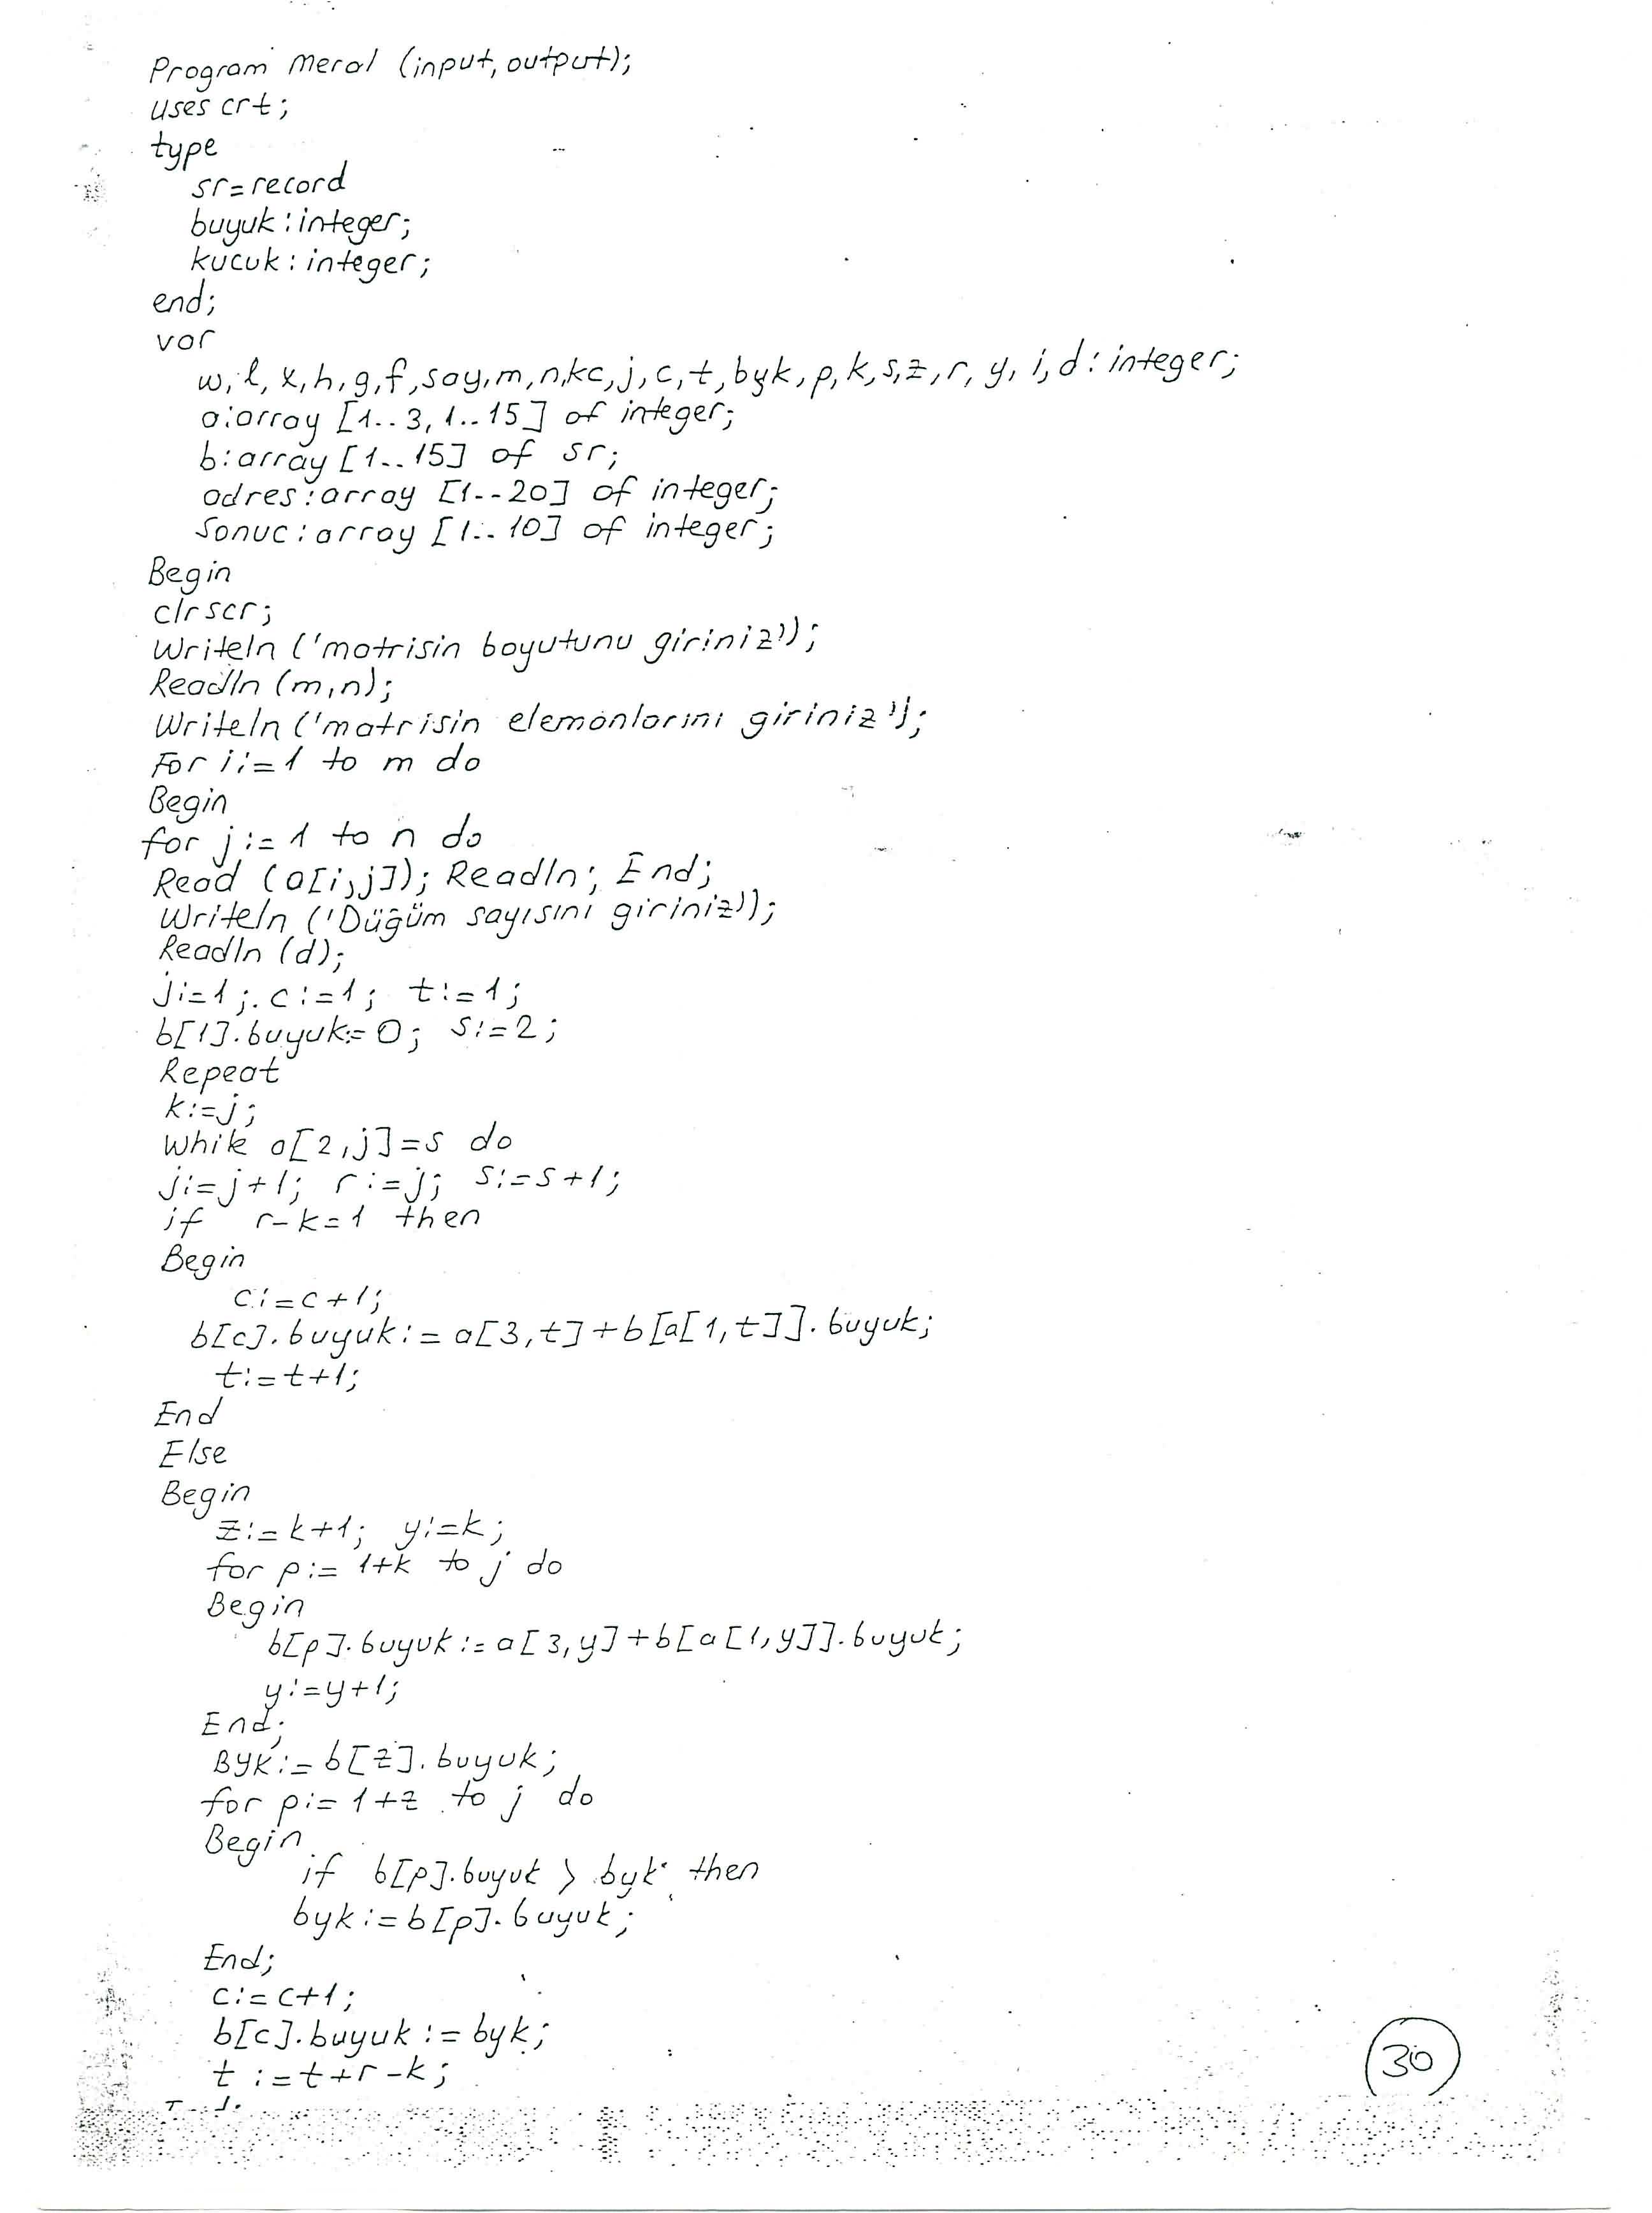 Program Meral (input, output);
uses crt;
type
sr=record
buyuk:integer;
kucuk:integer;
end;
var
w,l,x,h,g,f,say,m,n,kc,j,c,t,byk,p,k,s,z,r,y,i,d:integer;
a:array [1..3,1..15] of integer;
b:array [1..15] of sr;
adres:array [1..20] of integer;
Sonuc:array [1..10] of integer;
Begin
clrscr;
Writeln ('matrisin boyutunu giriniz');
Readln (m,n);
Writeln ('matrisin elemanlarını giriniz');
For i:=1 to m do
Begin
for j:=1 to n do
Read (a[i,j]); Readln; End;
Writeln ('Düğüm sayısını giriniz');
Readln (d);
j:=1; c:=1; t:=1;
b[1].buyuk:=0; s:=2;
Repeat
k:=j;
While a[2,j]=s do
j:=j+1; r:=j; s:=s+1;
if r-k=1 then
Begin
c:=c+1;
b[c].buyuk:=a[3,t]+b[a[1,t]].buyuk;
t:=t+1;
End
Else
Begin
z:=k+1; y:=k;
for p:=1+k to j do
Begin
b[p].buyuk:=a[3,y]+b[a[1,y]].buyuk;
y:=y+1;
End;
Byk:=b[z].buyuk;
for p:=1+z to j do
Begin
if b[p].buyuk > byk then
byk:=b[p].buyuk;
End;
c:=c+1;
b[c].buyuk:=byk;
t:=t+r-k;
30